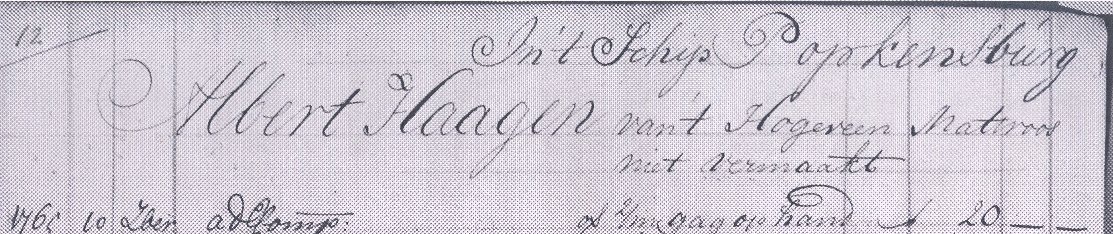 12
In't Schip Popkensburg
Albert Haagen van't Hogeveen Mattroos
niet vermaakt
10 adComp: op hand 20